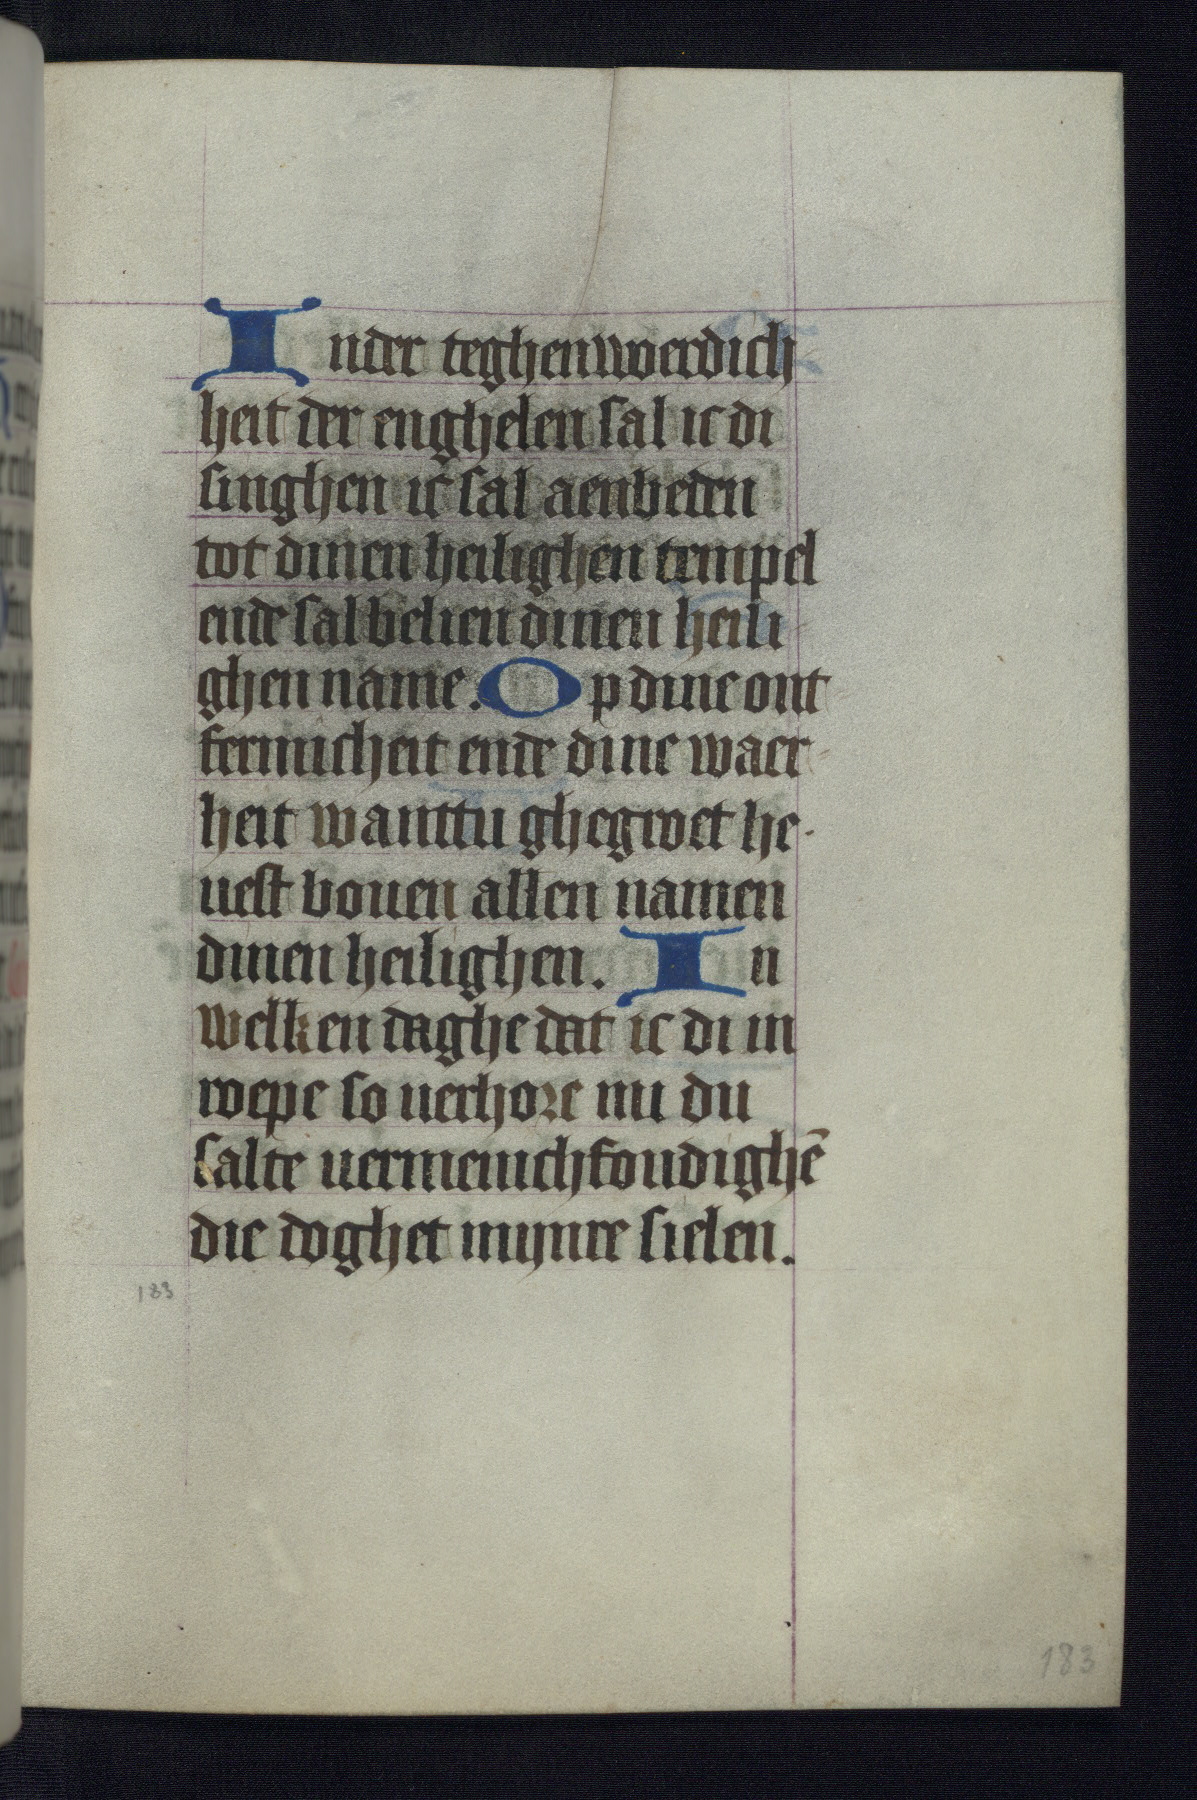 Inder teghenwoerdich
heit der enghelen sal ic di
singhen ic sal aenbeden
tot dinen heilighen tempel
ende sal belien dinen heili
ghen name. Op dine ont
fermicheit ende dine waer
heit wanttu ghegroet he
uest bouen allen namen
dinen heilighen. In
welken daghe dat ic di in
roepe so uerhore mi du
salte uermenichfoudighē
die doghet mijnre sielen.
183
183